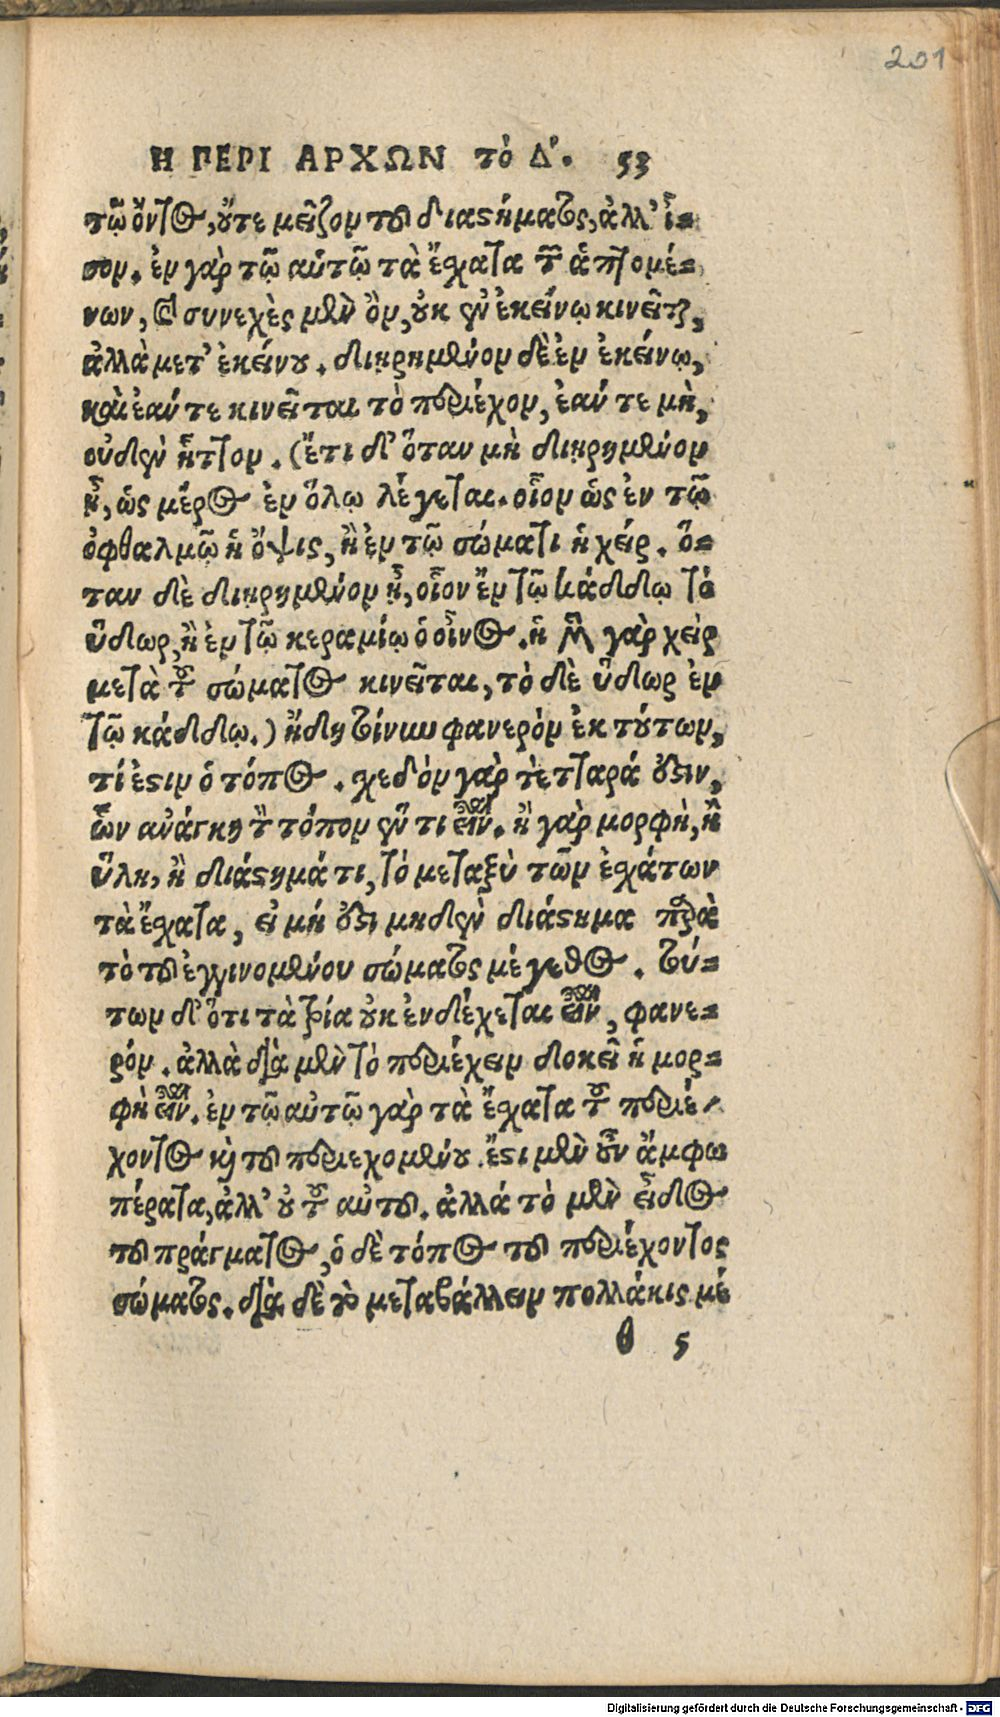 201
Η ΠΕΡΙ ΑΡΧΩΝ τὸ Δ'. 53
τῷ ὄντος, ὄτε μεῖζον τοῦ διαστήματος, ἀλλ' ἴ=
σον. ἐν γὰρ τῷ αὐτῷ τὰ ἔσχατα τῶν ἁπτομέ=
νων, καὶ συνεχὲς μὲν ὂν, οὐκ ἐν ἐκείνῳ κινεῖται,
ἀλλὰ μετ' ἐκείνου. διῃρημένον δὲ ἐν ἐκείνῳ,
καὶ ἐάν τε κινεῖται τὸ περιέχον, ἐάν τε μὴ,
οὐδὲν ἧττον. (ἔτι δ' ὅταν μὴ διῃρημένον
ᾖ, ὡς μέρος ἐν ὅλῳ λέγεται. οἷον ὡς ἐν τῷ
ὀφθαλμῷ ἡ ὄψις, ἢ ἐν τῷ σώματι ἡ χείρ. ὅ=
ταν δὲ διῃρημένον ᾖ, οἷον ἐν τῷ κάδδῳ τὸ
ὕδωρ, ἢ ἐν τῷ κεραμίῳ ὁ οἶνος. ἡ μὲν γὰρ χεὶρ
μετὰ τοῦ σώματος κινεῖται, τὸ δὲ ὕδωρ ἐν
τῷ κάδδῳ.) ἤδη τοίνυν φανερὸν ἐκ τούτων,
τί ἐστιν ὁ τόπος. σχεδὸν γὰρ τέτταρά ἐστιν,
ὧν ἀνάγκη τὸν τόπον ἕν τι εἶναι. ἢ γὰρ μορφὴ, ἢ
ὕλη, ἢ διάστημά τι, τὸ μεταξὺ τῶν ἐσχάτων
τὰ ἔσχατα, εἰ μή ἐστι μηδὲν διάστημα παρὰ
τὸ τοῦ ἐγγινομένου σώματος μέγεθος. τού=
των δ' ὅτι τὰ τρία οὐκ ἐνδέχεται εἶναι, φανε=
ρόν. ἀλλὰ διὰ μὲν τὸ περιέχειν δοκεῖ ἡ μορ=
φὴ εἶναι. ἐν τῷ αὐτῷ γὰρ τὰ ἔσχατα τοῦ περιέ-
χοντος καὶ τοῦ περιεχομένου. ἔστι μὲν οὖν ἄμφω
πέρατα, ἀλλ' οὐ τοῦ αὐτοῦ. ἀλλά τὸ μὲν εἶδος
τοῦ πράγματος, ὁ δὲ τόπος τοῦ περιέχοντος
σώματος. διὰ δὲ τὸ μεταβάλλειν πολλάκις μέ
θ 5
Digitalisierung gefördert durch die Deutsche Forschungsgemeinschaft - DFG